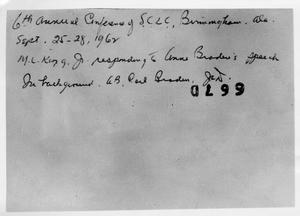 6th Annual Conference of SCLC, Birmingham, Ala.
Sept. 25-28, 1962
M.L. King, Jr. responding to Anne Braden's speech
In background. AB, Carl Braden, JAD.
0766